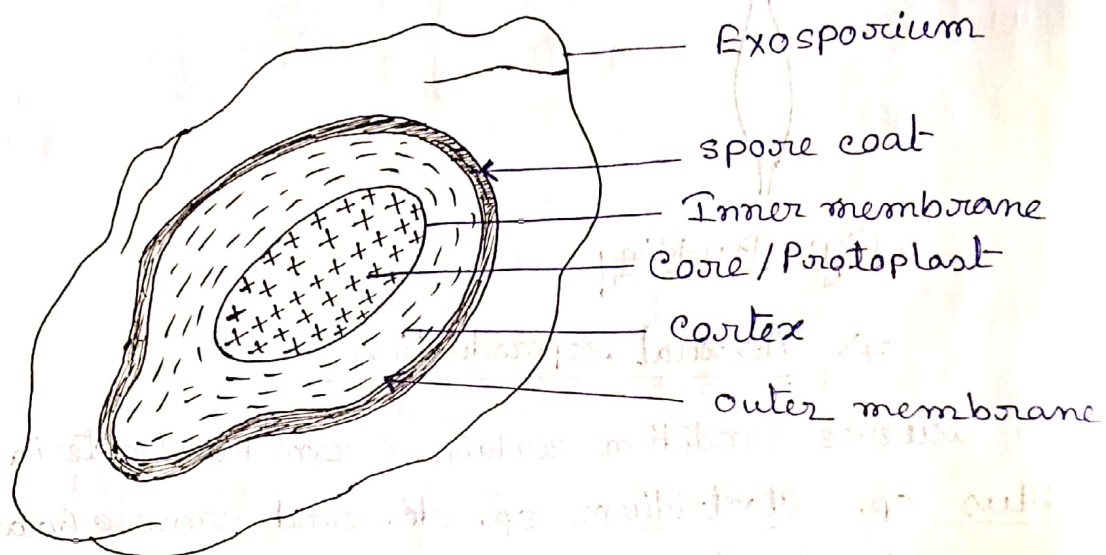 Exosporium
spore coat
Inner membrane
Core/Protoplast
Cortex
outer membrane